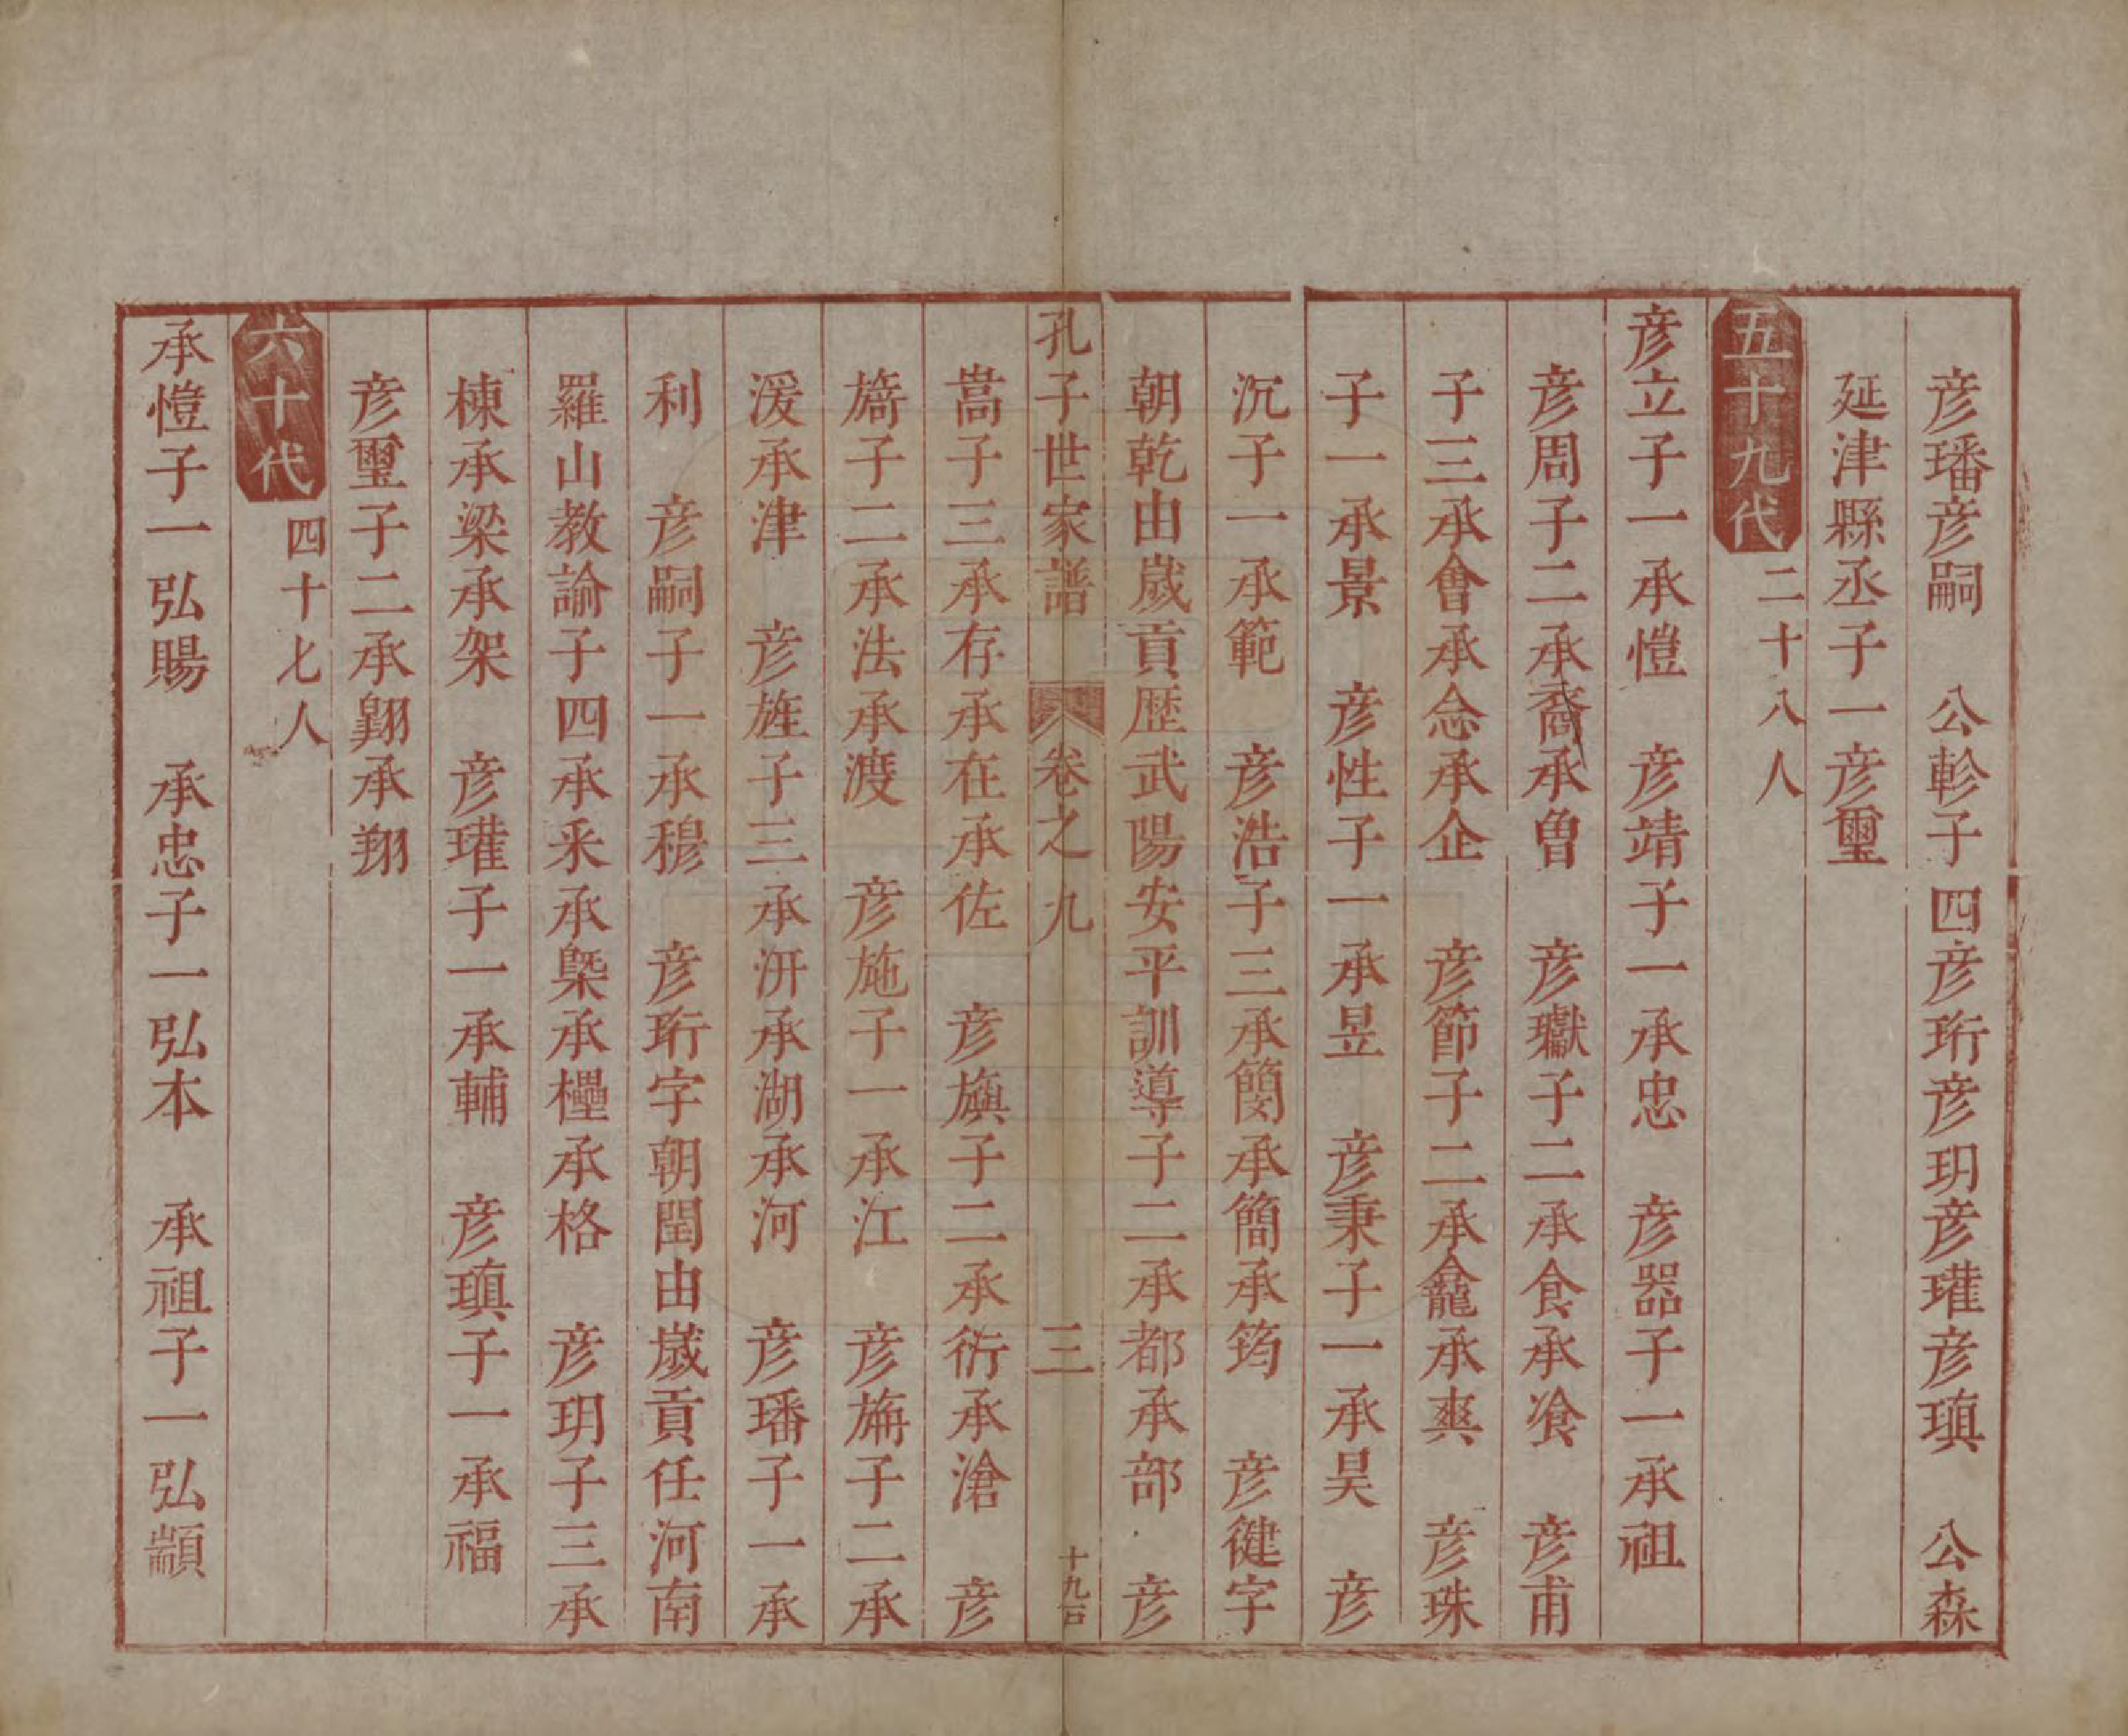 彦璠彦嗣　公軫子四彦珩彦玥彦瓘彦瑱　公森
延津縣丞子一彦璽
五十九代　二十八人
彦立子一承愷　彦靖子一承忠　彦器子一承祖
彦周子二承裔承曾　彦瓛子二承食承飡　彦甫
子三承會承念承企　彦節子二承龕承爽　彦珠
子一承景　彦性子一承昱　彦秉子一承昊　彦
沉子一承範　彦浩子三承簡承筠　彦健字
朝乾由歲貢歴武陽安平訓導子二承都承部　彦
孔子世家譜　卷之九　三　十九
嵩子三承存承在承佐　彦旟子二承衍承滄　彦
旖子二承法承渡　彦施子一承江　彦旃子二承
湲承津　彦旌子三承汧承湖承河　彦璠子一承
利　彦嗣子一承穆　彦珩字朝閏由歲貢任河南
羅山教諭子四承釆承槩承櫑承格　彦玥子三承
棟承梁承架　彦瓘子一承輔　彦瑱子一承福
彦璽子二承翺承翔
六十代　四十七人
承愷子一弘賜　承忠子一弘本　承祖子一弘顓